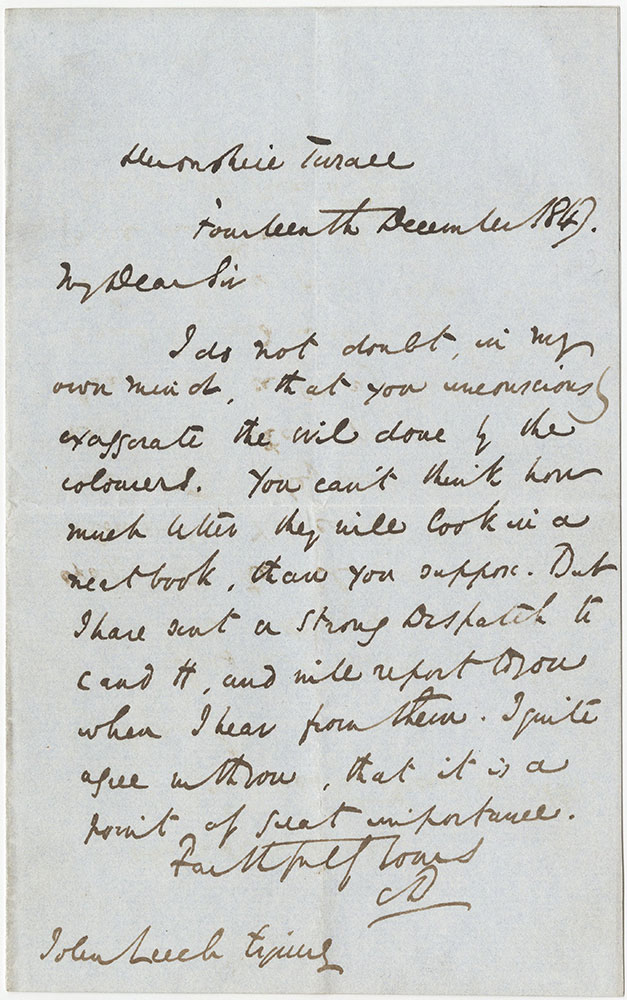 Devonshire Terrace
Fourteenth December 1843.
My Dear Sir
I do not doubt, in my
own mind, that you unconsciously
exaggerate the evil done by the
colourers. You can't think how
much better they will look in a
neat book, than you suppose. But
I have sent a Strong Dispatch to
C and H, and will report to you
when I hear from them. I quite
agree with you, that it is a
point of great importance.
Faithfully Yours
CD
John Leech Esquire